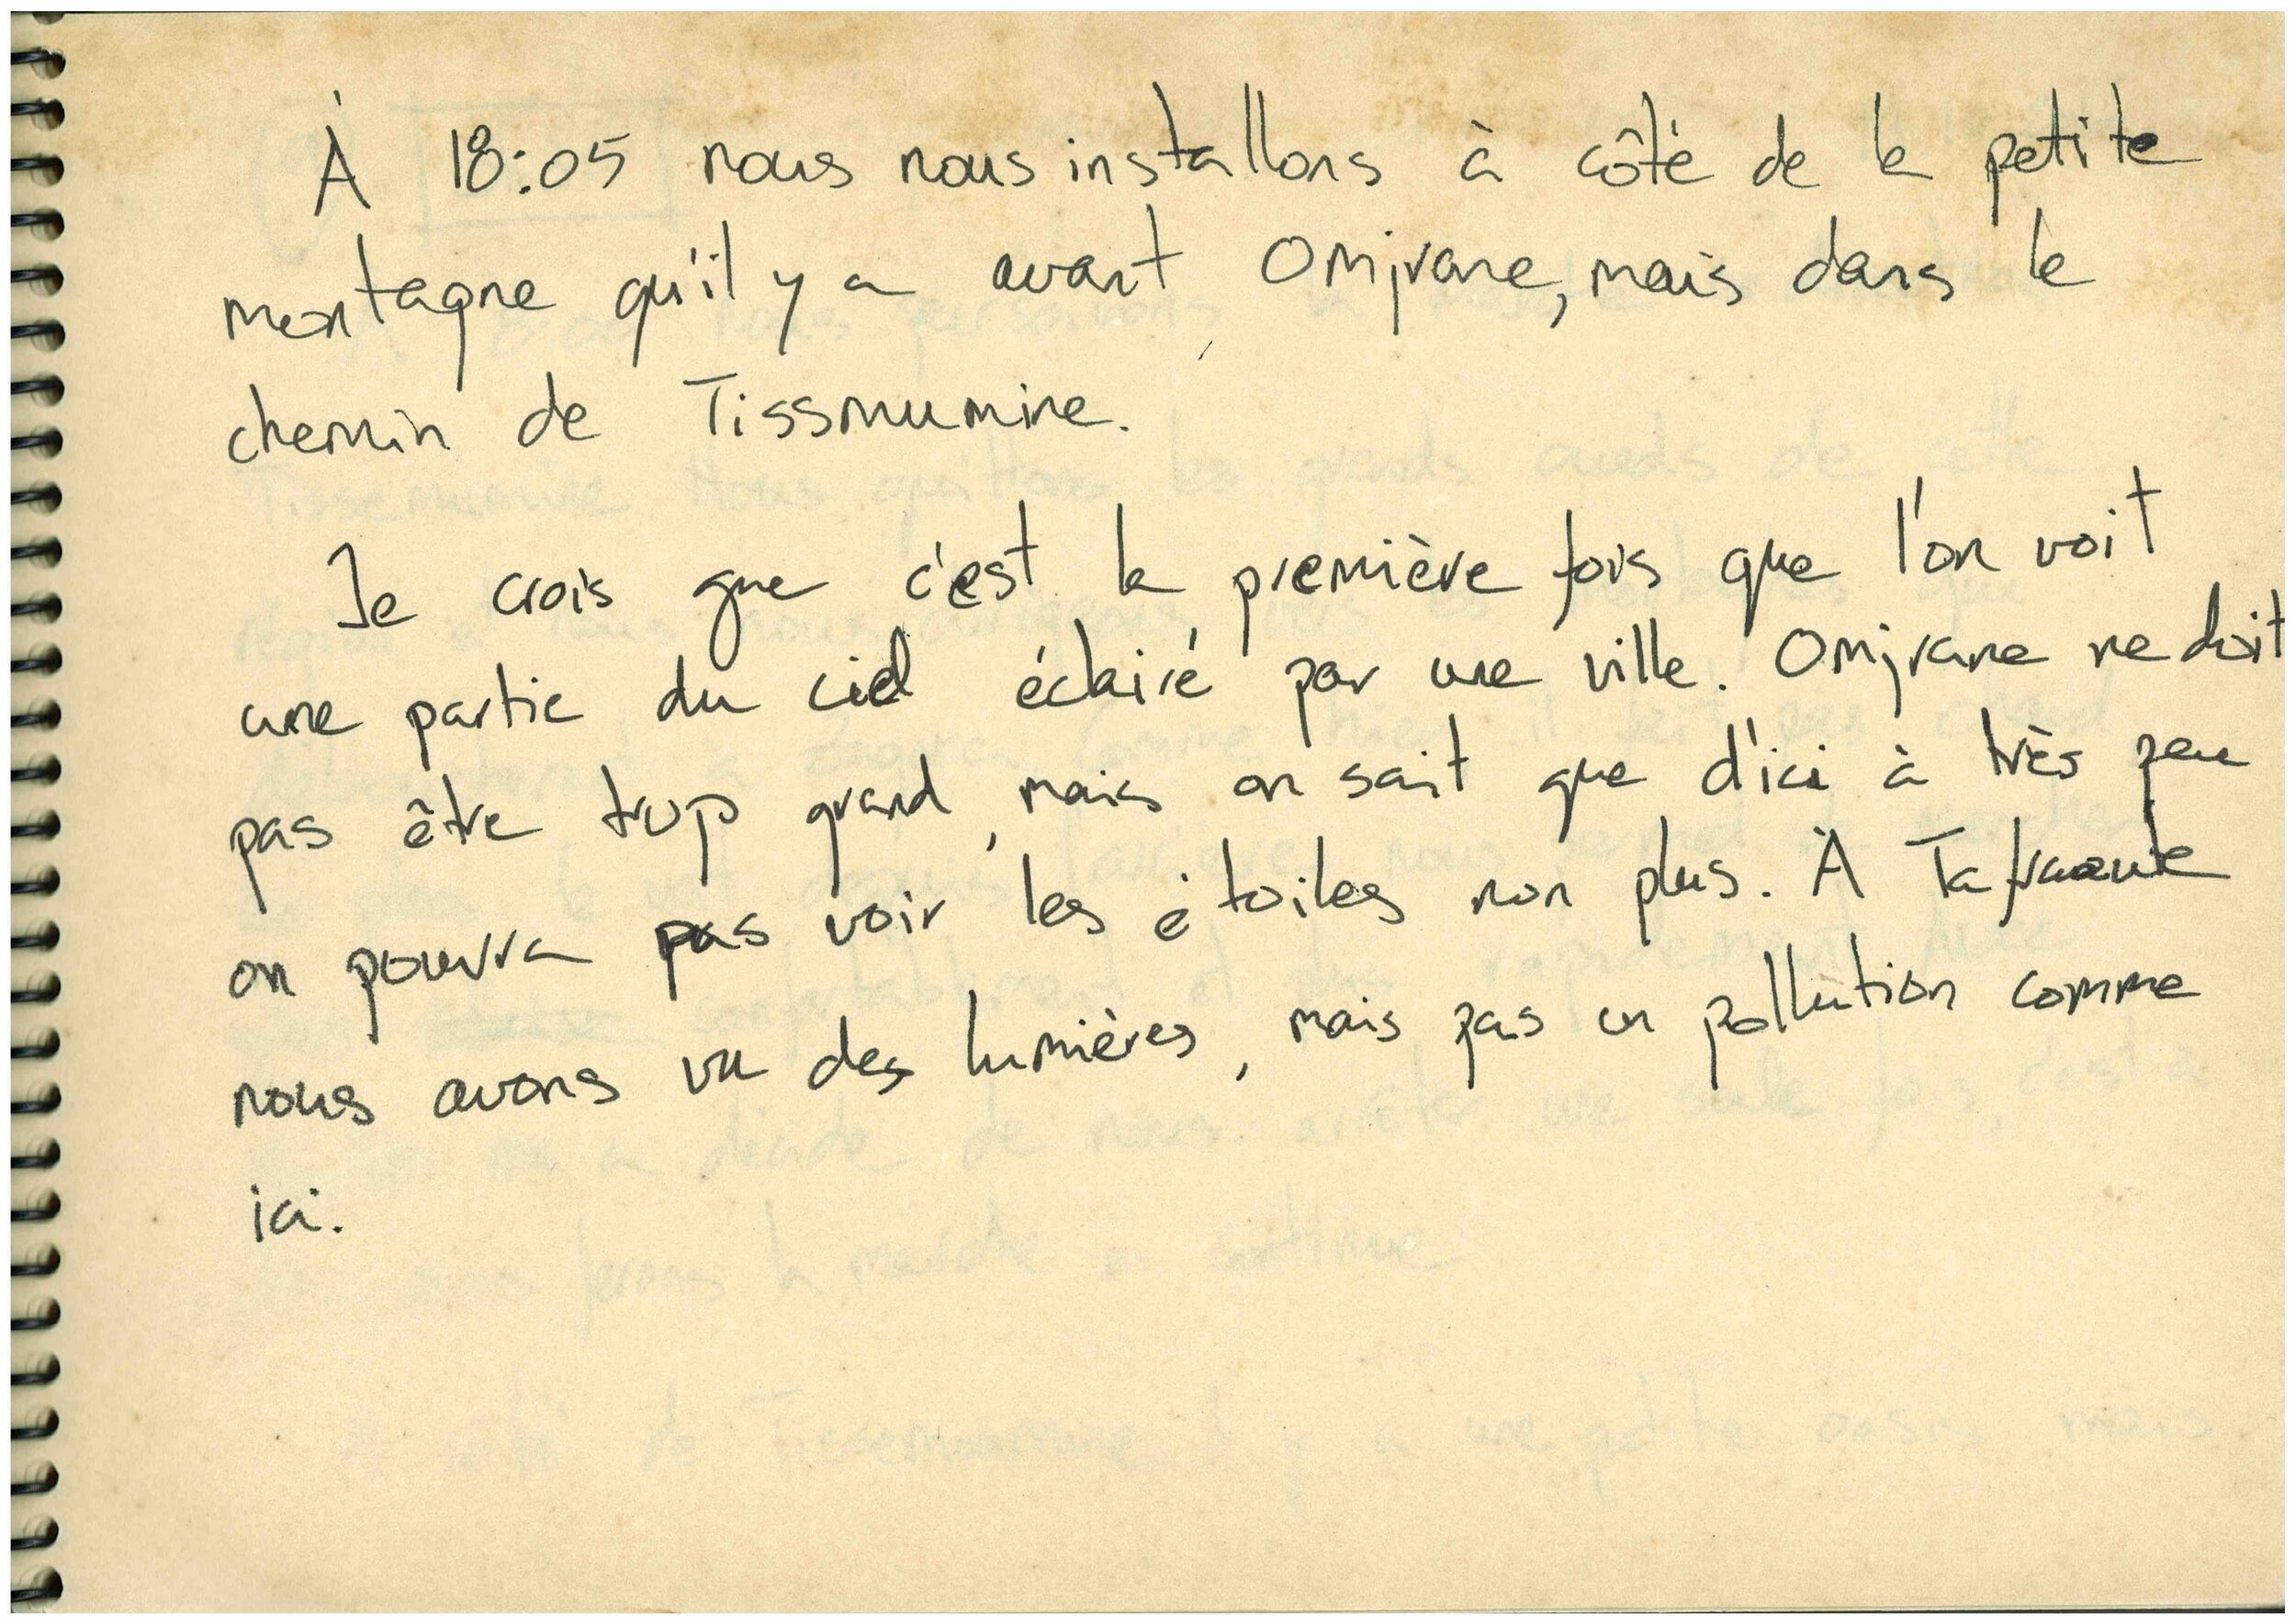 À 18:05 nous nous installons à côté de la petite
montagne qu'il y a avant Omjrane, mais dans le
chemin de Tissmumine.
Je crois que c'est la première fois que l'on voit
une partie du ciel éclairé par une ville. Omjrane ne doit
pas être trop grand, mais on sait que d'ici à très peu
on pourra pas voir les étoiles non plus. À
nous avons vu des lumières, mais pas un pollution comme
ici.